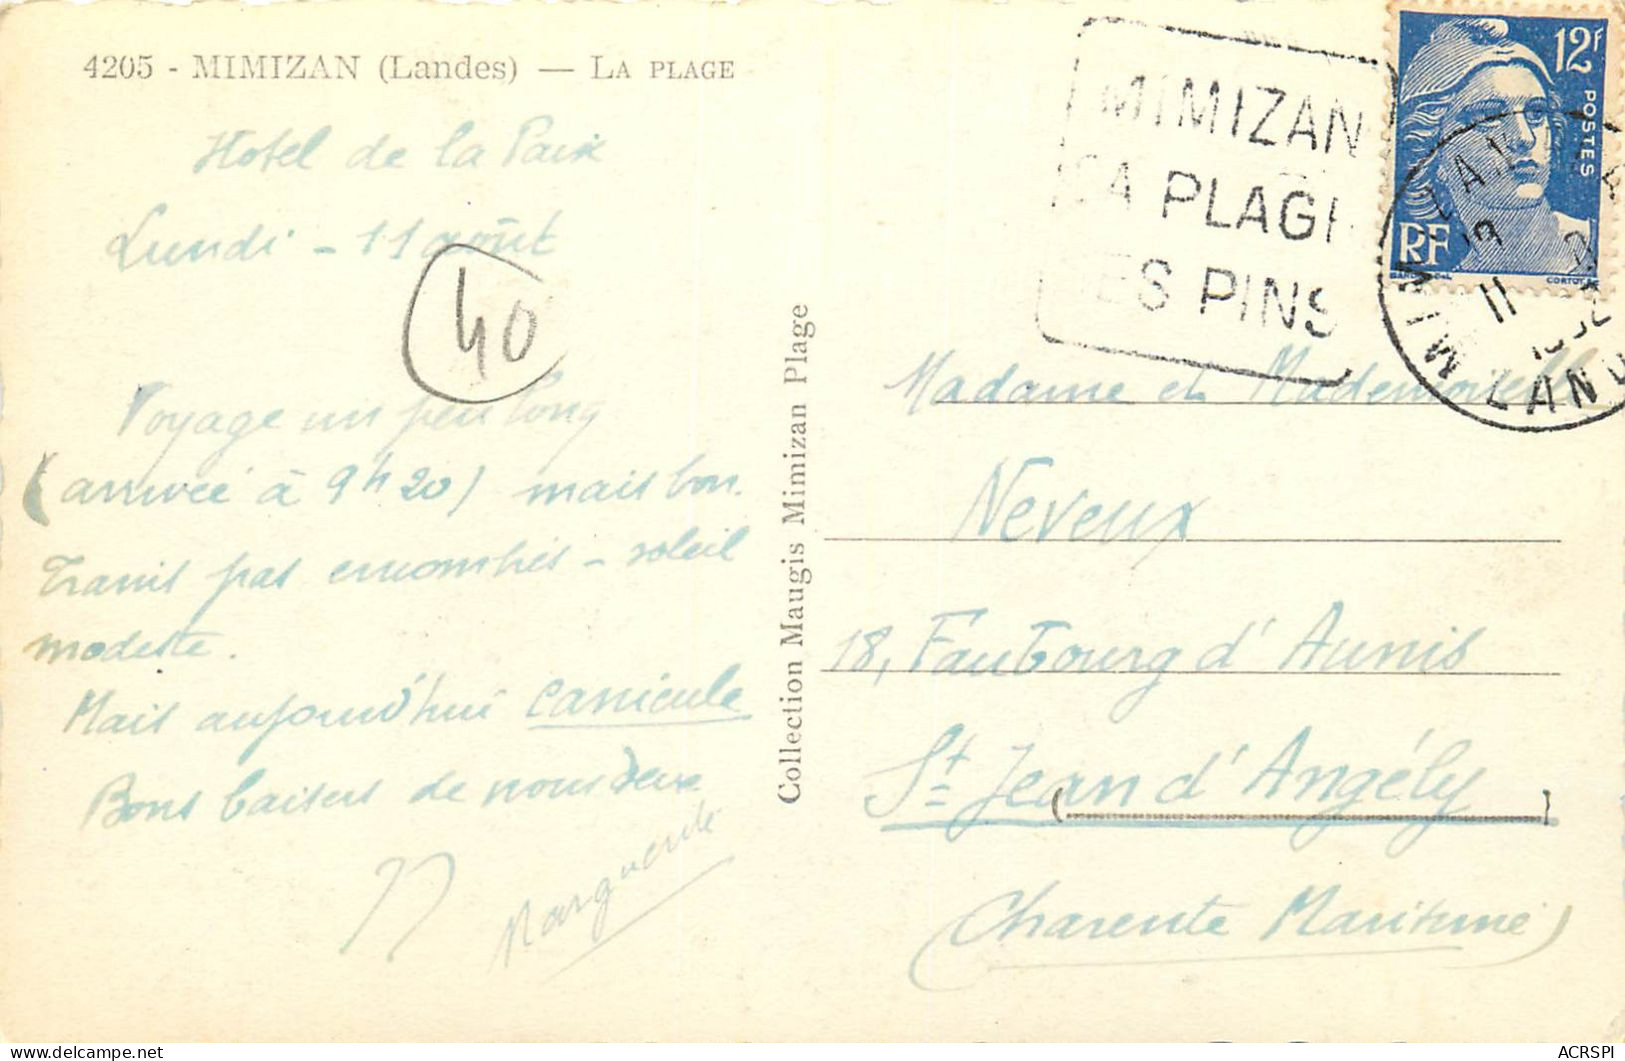 4205 - MIMIZAN (Landes) — LA PLAGE
Hotel de la Paix
Lundi - 11 août
40
Voyage un peu long
(arrivée à 9h20) mais bon.
Trains pas encombrés - soleil
modeste.
Mais aujourd'hui canicule
Bons baisers de nous deux
Marguerite
Collection Maugis Mimizan Plage
MIMIZAN
SA PLAGE
SES PINS
12F
POSTES
RF
MIMIZAN
11
1952
LAND
Madame et Mademoiselle
Neveux
18, Faubourg d'Aunis
St Jean d'Angély
(Charente Maritime)
ACRSPI